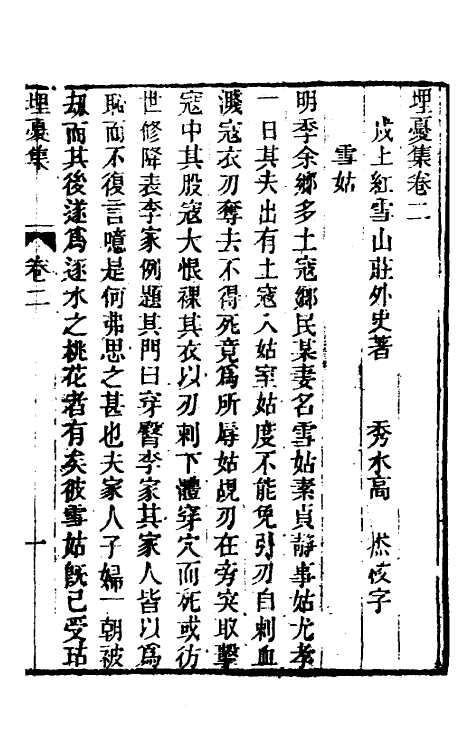 埋憂集卷二
戌上紅雪山莊外史著　秀水高　校字
雪姑
明季余鄉多土寇鄉民某妻名雪姑素貞靜事姑尤孝
一日其夫出有土寇入姑室姑度不能免引刃自刺血
濺寇衣刃奪去不得死竟爲所辱姑覘刃在旁突取擊
寇中其股寇大恨裸其衣以刃刺下體穿穴而死或彷
世修降表李家例題其門曰穿臀李家其家人皆以爲
恥而不復言噫是何弗思之甚也夫家人子婦一朝被
刼而其後遂爲逐水之桃花者有矣彼雪姑旣已受玷
埋憂集　卷二　一